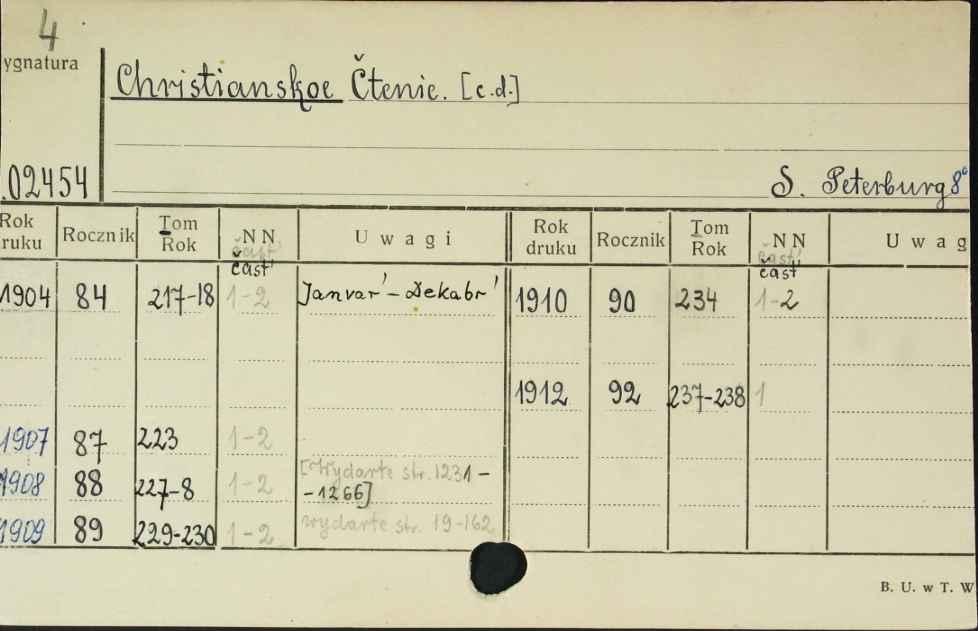 4
ygnatura
Christianskoe Čtenie. [c.d.]
.02454
S. Peterburg 8°
Rok
ruku
Rocznik
Tom
Rok
NN
čast'
čast'
Uwagi
Rok
druku
Rocznik
Tom
Rok
NN
čast'
čast'
Uwag
1904 84 217-18 1-2 Janvar' - Dekabr' 1910 90 234 1-2
1912 92 237-238 1
1907 87 223 1-2
1908 88 227-8 1-2 [Wydarte str. 1231 -
-1266]
1909 89 229-230 1-2 wydarte str. 19-162
B. U. w T. W